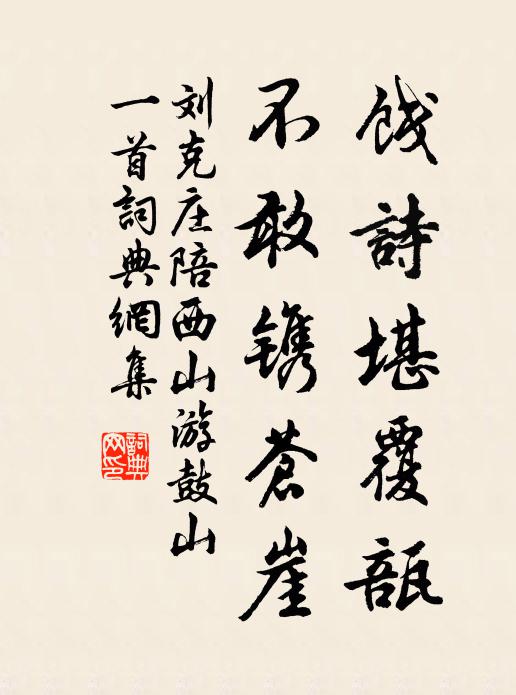 饯詩堪覆瓿
不敢镌蒼崖
刘克庄陪西山游鼓山
一首詞典網集
詞典
网印